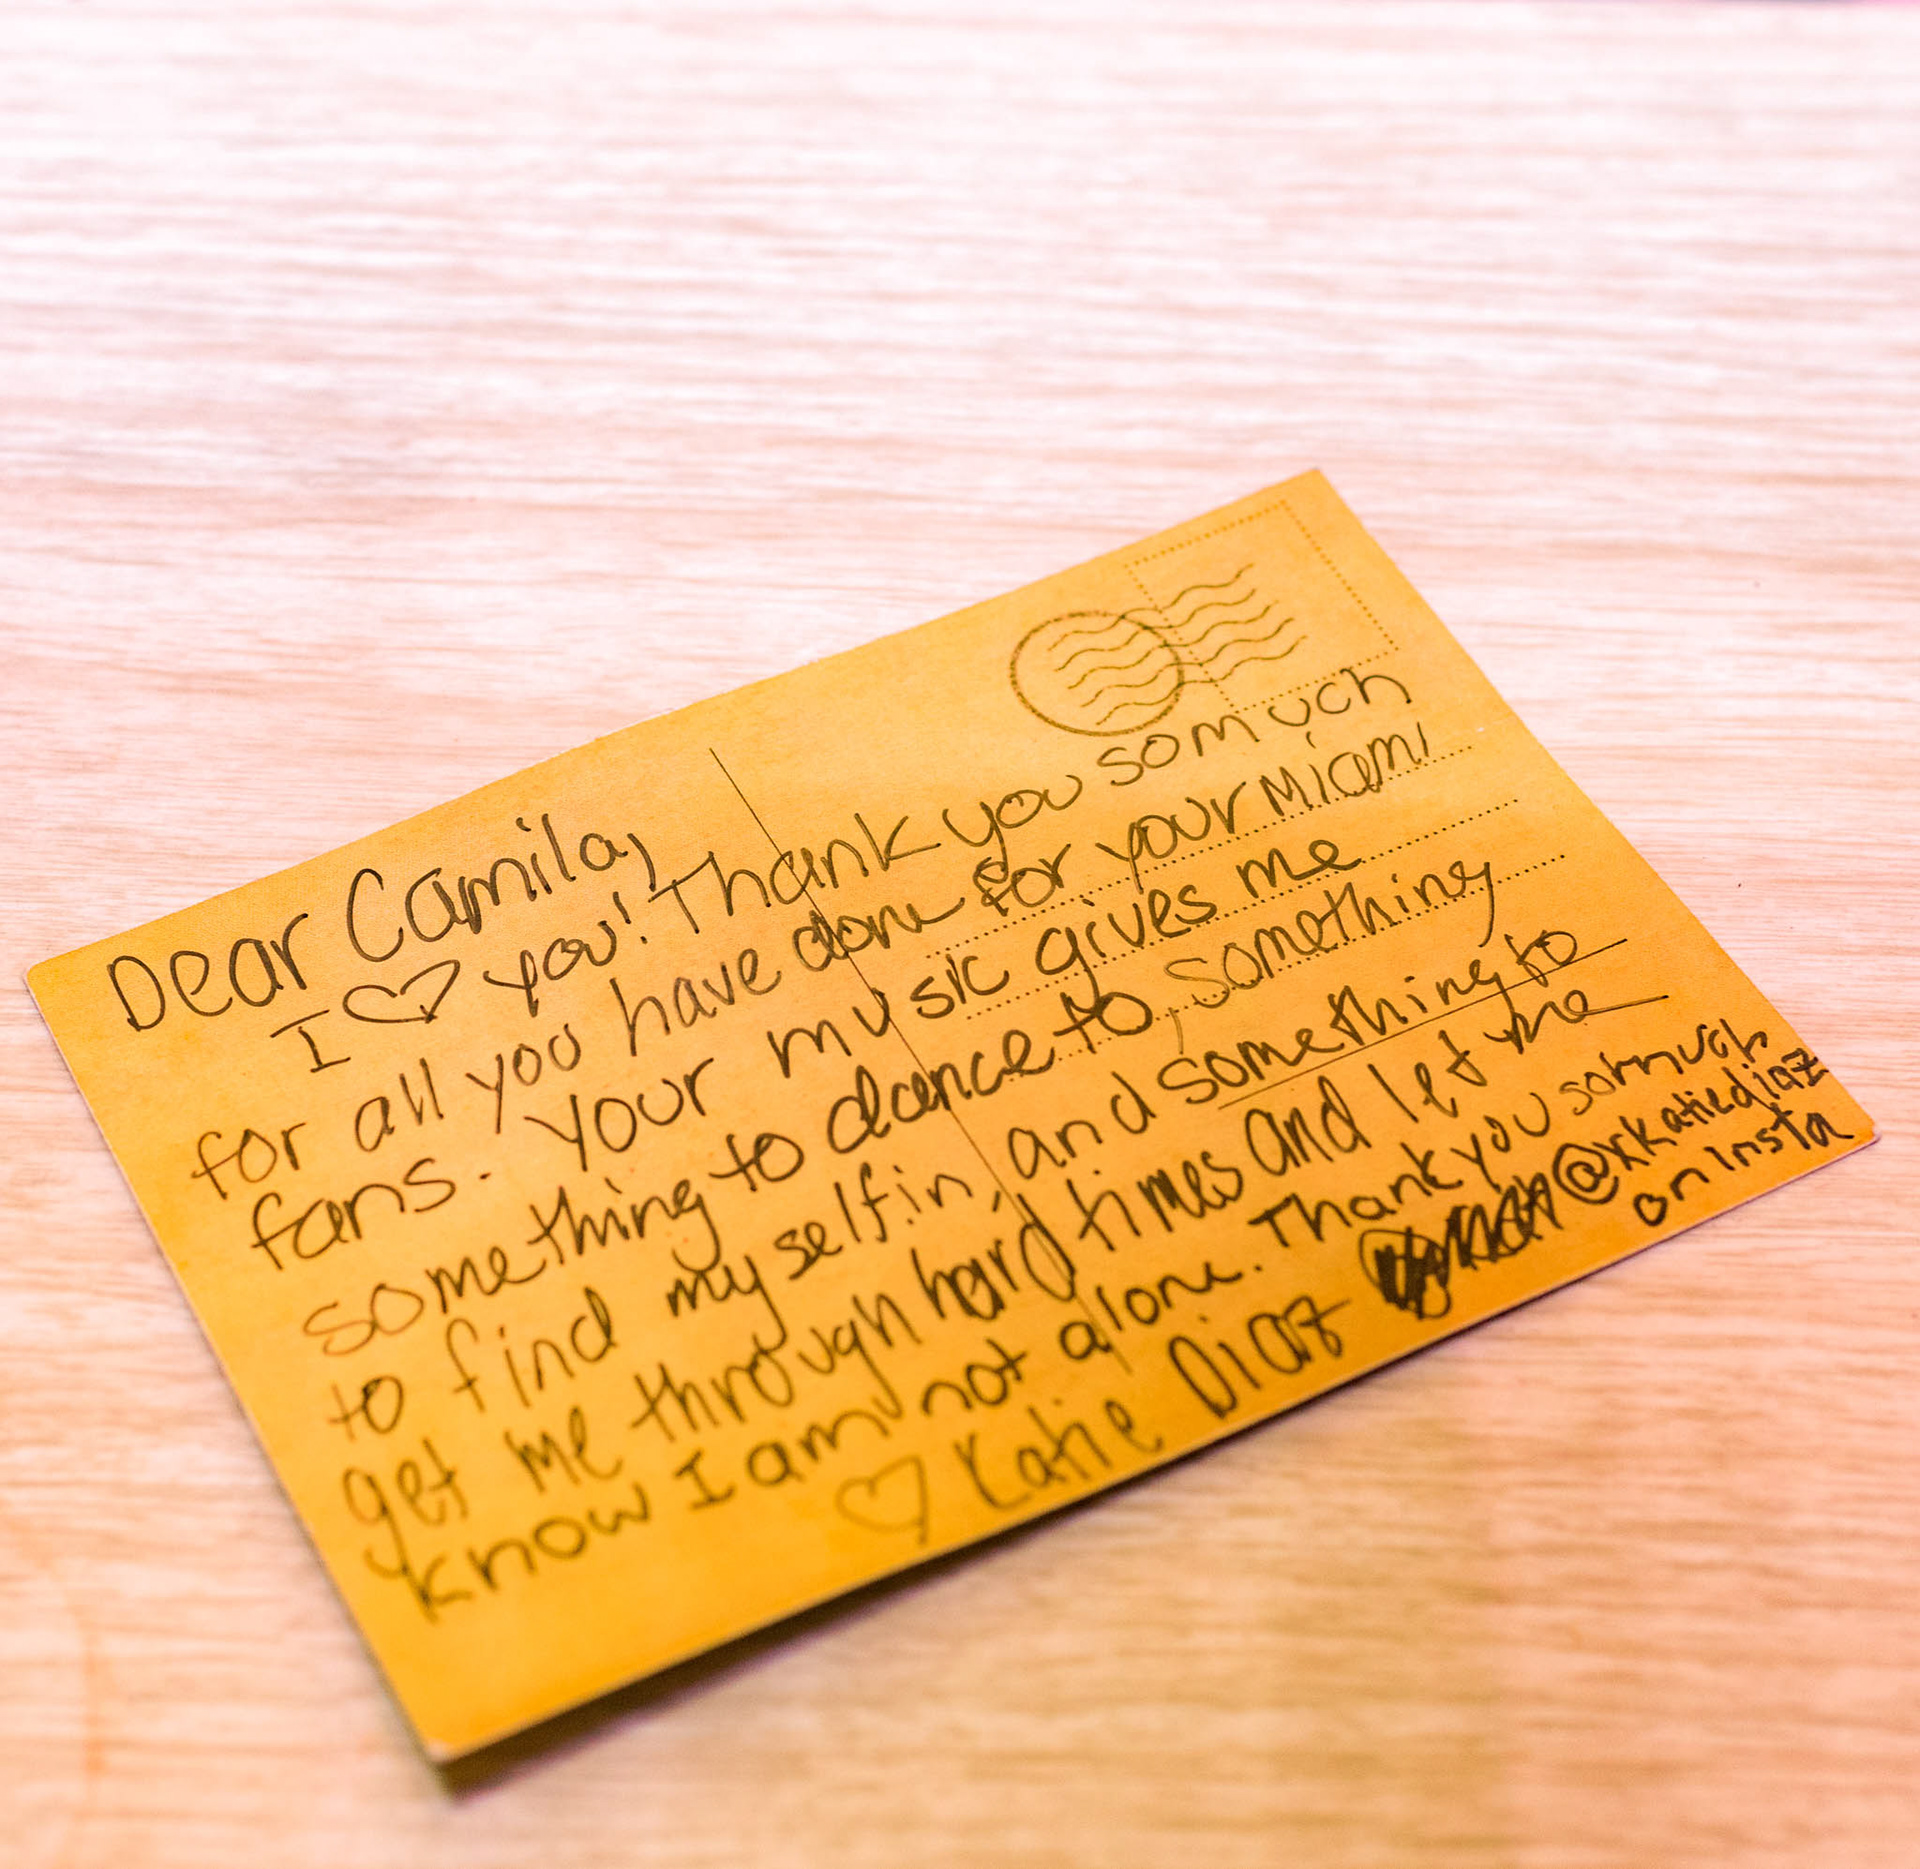 Dear Camila,
I ♡ you! Thank you so much
for all you have done for your Miami
fans. Your music gives me
something to dance to, something
to find myself in, and something to
get me through hard times and let me
know I am not alone. Thank you so much
♡ Katie Diaz @xkatiediaz
on Insta